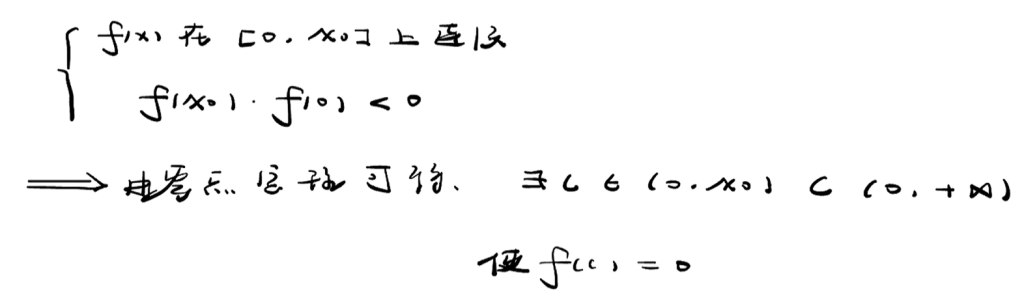 f(x) 在 [0, x₀] 上连续
f(x₀)·f(0) < 0
⟹ 由零点定理可知, ∃ c ∈ (0, x₀) ⊂ (0, +∞)
使 f(c) = 0